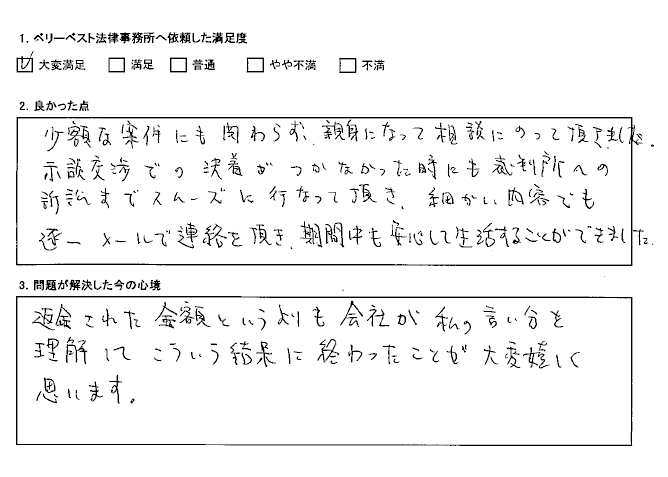 1. ベリーベスト法律事務所へ依頼した満足度
☑ 大変満足 □ 満足 □ 普通 □ やや不満 □ 不満
2. 良かった点
少額な案件にも関わらず、親身になって相談にのって頂きました。
示談交渉での決着がつかなかった時にも裁判所への
訴訟までスムーズに行なって頂き、細かい内容でも
逐一メールで連絡を頂き、期間中も安心して生活することができました。
3. 問題が解決した今の心境
返金された金額というよりも会社が私の言い分を
理解してこういう結果に終わったことが大変嬉しく
思います。